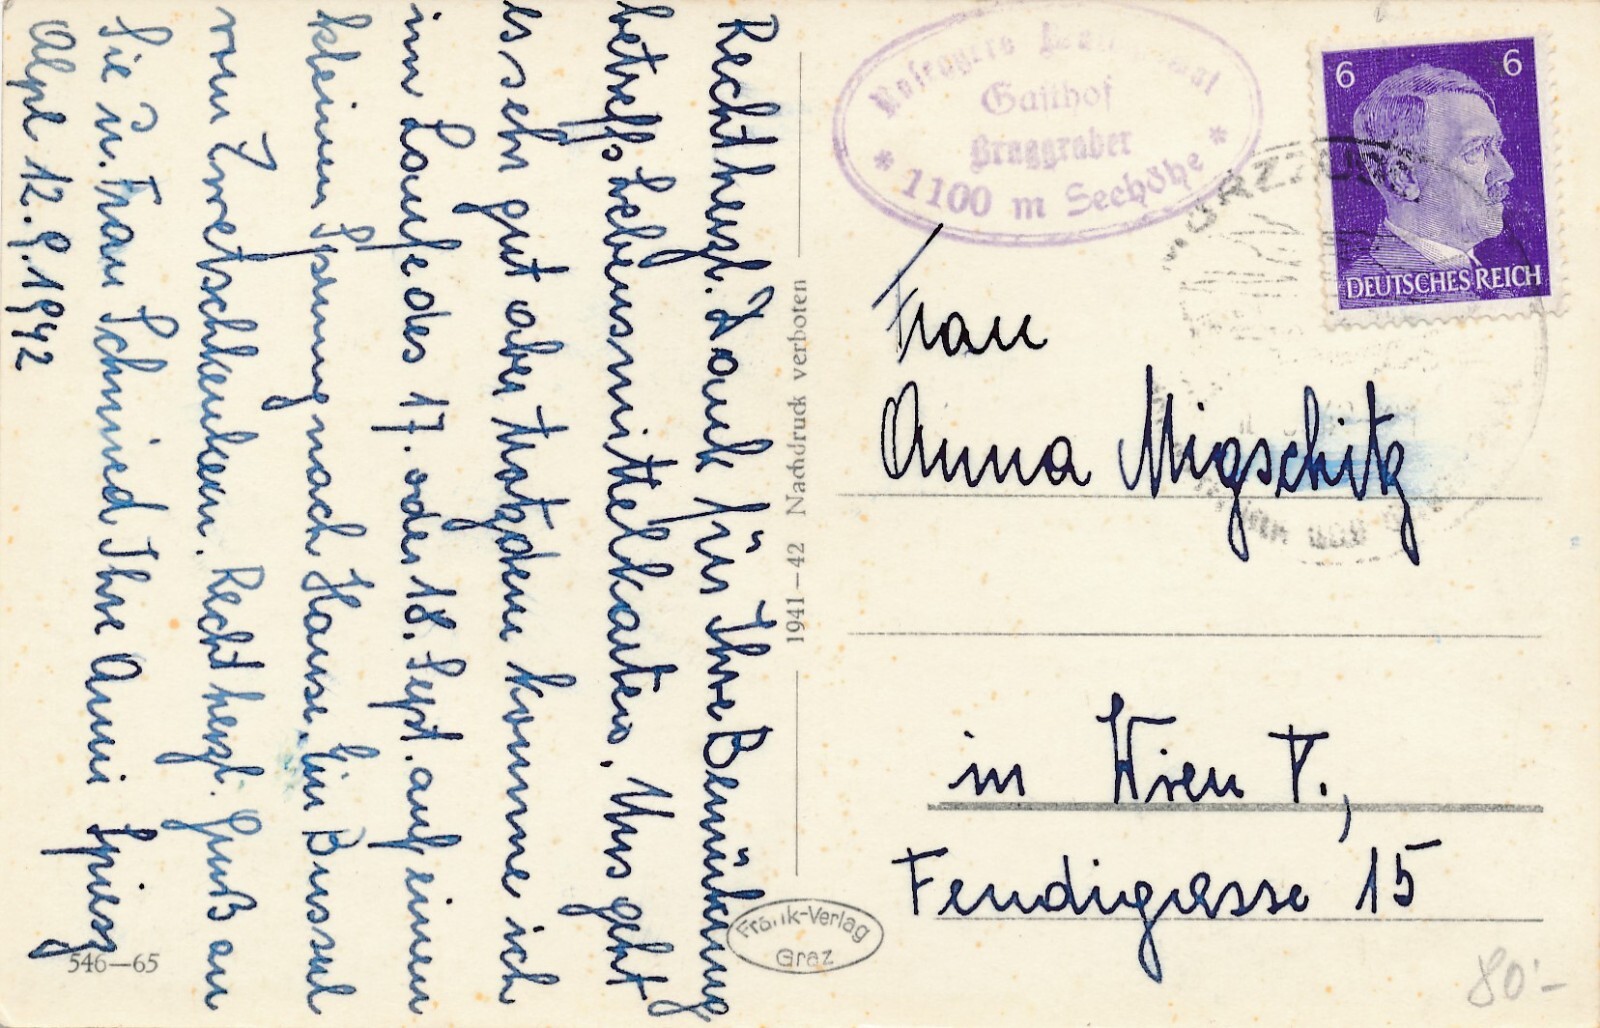 Recht herzl. Dank für Ihre Bemühung
betreffs Lebensmittelkarten. Uns geht
es sehr gut aber trotzdem komme ich
im Laufe des 17. oder 18. Sept. auf einen
kleinen Sprung nach Hause. Ein Bussal
vom Zwetschkenkern. Recht herzl. Gruß an
Sie u. Frau Schmied Ihre Anni Spiess
Alpl 12.9.1942
546—65
1941—42 Nachdruck verboten
Frank-Verlag
Graz
Gasthof
Bruggraber
* 1100 m Seehöhe *
6 6
DEUTSCHES REICH
Frau
Anna Migschitz
in Wien V.,
Fendigasse 15
80.-